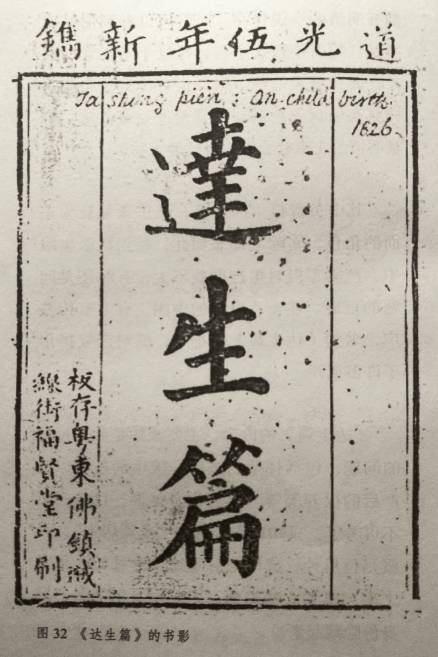 道光伍年新鐫
Ta shing pien : On child birth
1826.
達生篇
板存粤東佛鎮
線街福賢堂印刷
图 32 《达生篇》的书影